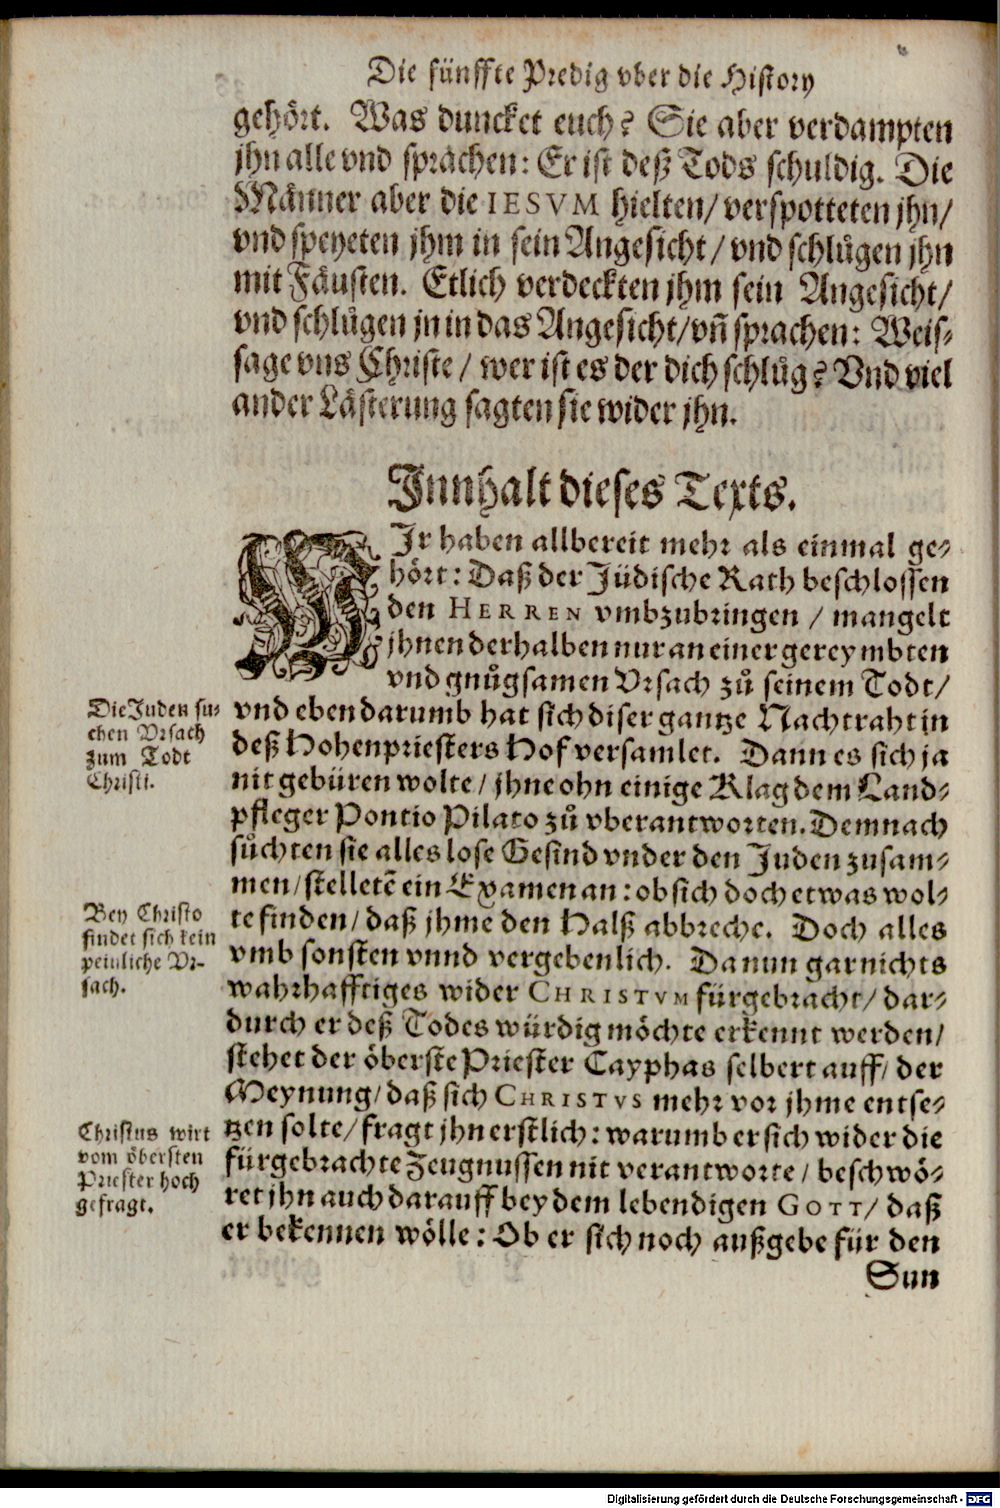 Die fünffte Predig vber die History
gehört. Was duncket euch? Sie aber verdampten
jhn alle vnd sprachen: Er ist deß Tods schuldig. Die
Männer aber die IESVM hielten/ verspotteten jhn/
vnd speyeten jhm in sein Angesicht/ vnd schlůgen jhn
mit Fäusten. Etlich verdeckten jhm sein Angesicht/
vnd schlůgen jn in das Angesicht/ vñ sprachen: Weis⸗
sage vns Christe/ wer ist es der dich schlůg? Vnd viel
ander Lästerung sagten sie wider jhn.
Innhalt dieses Texts.
WIr haben allbereit mehr als einmal ge⸗
hört: Daß der Jüdische Rath beschlossen
den HERREN vmbzubringen / mangelt
jhnen derhalben nur an einer gereymbten
vnd gnůgsamen Vrsach zů seinem Todt/
Die Juden su⸗
chen Vrsach
zum Todt
Christi.
vnd eben darumb hat sich diser gantze Nachtraht in
deß Hohenpriesters Hof versamlet. Dann es sich ja
nit gebüren wolte/ jhne ohn einige Klag dem Land⸗
pfleger Pontio Pilato zů vberantworten. Demnach
sůchten sie alles lose Gesind vnder den Juden zusam⸗
men/ stelletẽ ein Examen an: ob sich doch etwas wol⸗
Bey Christo
findet sich kein
peinliche Vr-
sach.
te finden/ daß jhme den Halß abbreche. Doch alles
vmb sonsten vnnd vergebenlich. Da nun gar nichts
wahrhafftiges wider CHRISTVM fürgebracht/ dar⸗
durch er deß Todes würdig möchte erkennt werden/
stehet der öberste Priester Cayphas selbert auff/ der
Meynung/ daß sich CHRISTVS mehr vor jhme entse⸗
Christus wirt
vom öbersten
Priester hoch
gefragt.
tzen solte/ fragt jhn erstlich: warumb er sich wider die
fürgebrachte Zeugnussen nit verantworte/ beschwö⸗
ret jhn auch darauff bey dem lebendigen GOTT/ daß
er bekennen wölle: Ob er sich noch außgebe für den
Sun
Digitalisierung gefördert durch die Deutsche Forschungsgemeinschaft - DFG